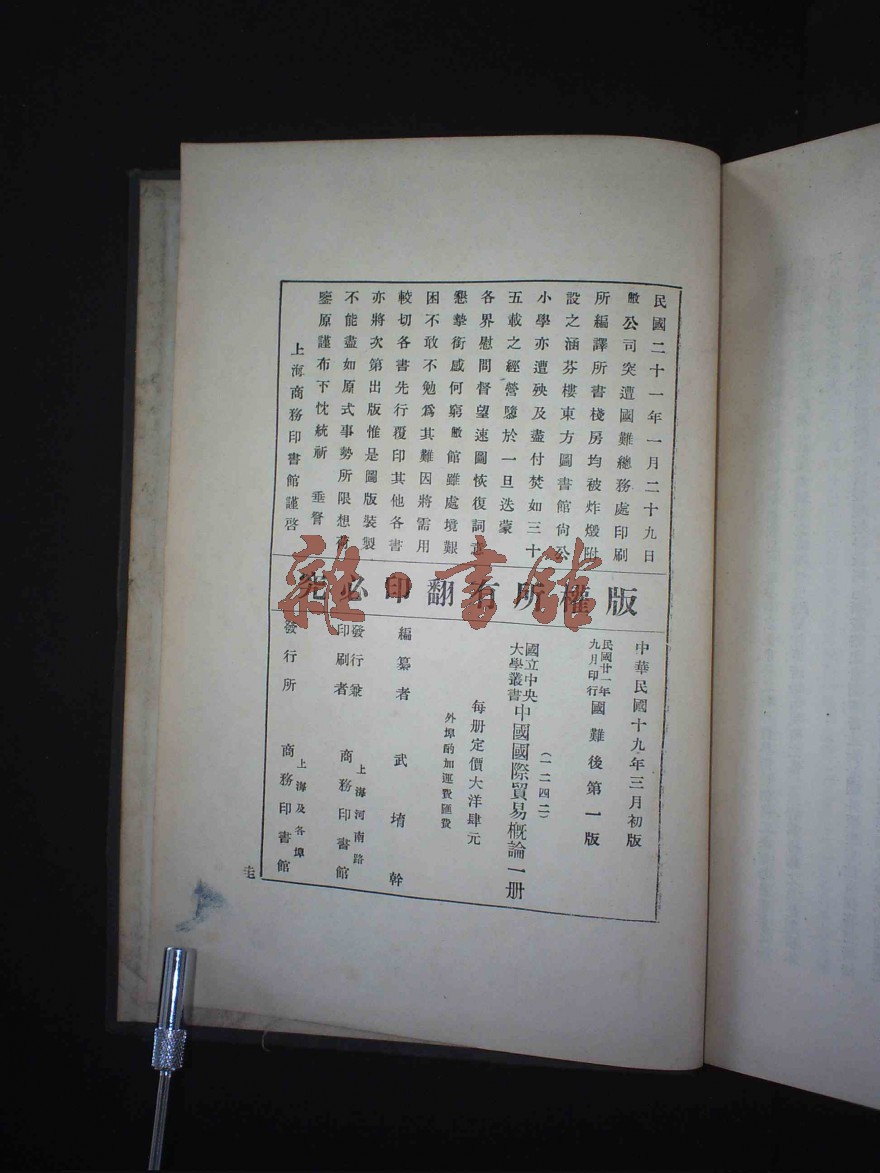 民國二十一年一月二十九日
敝公司突遭國難總務處印刷
所編譯所書棧房均被炸燬附
設之涵芬樓東方圖書館尙公
小學亦遭殃及盡付焚如三十
五載之經營隳於一旦迭蒙
各界慰問督望速圖恢復詞意
懇摯銜感何窮敝館雖處境艱
困不敢不勉爲其難因將需用
較切各書先行覆印其他各書
亦將次第出版惟是圖版裝製
不能盡如原式事勢所限想荷
鑒原謹布下忱統祈 垂詧
上海商務印書館謹啓
版權所有翻印必究
雜·書館
中華民國十九年三月初版
民國廿一年九月印行國難後第一版
(一二四二)
國立中央大學叢書中國國際貿易概論一册
每册定價大洋肆元
外埠酌加運費匯費
編纂者 武堉幹
發行兼印刷者 上海河南路 商務印書館
發行所 上海及各埠 商務印書館
圭